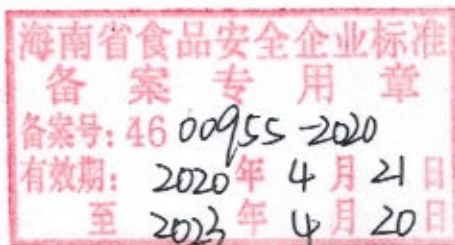 海南省食品安全企业标准
备案专用章
备案号:46 00955-2020
有效期: 2020年4月21日
至 2023年4月20日